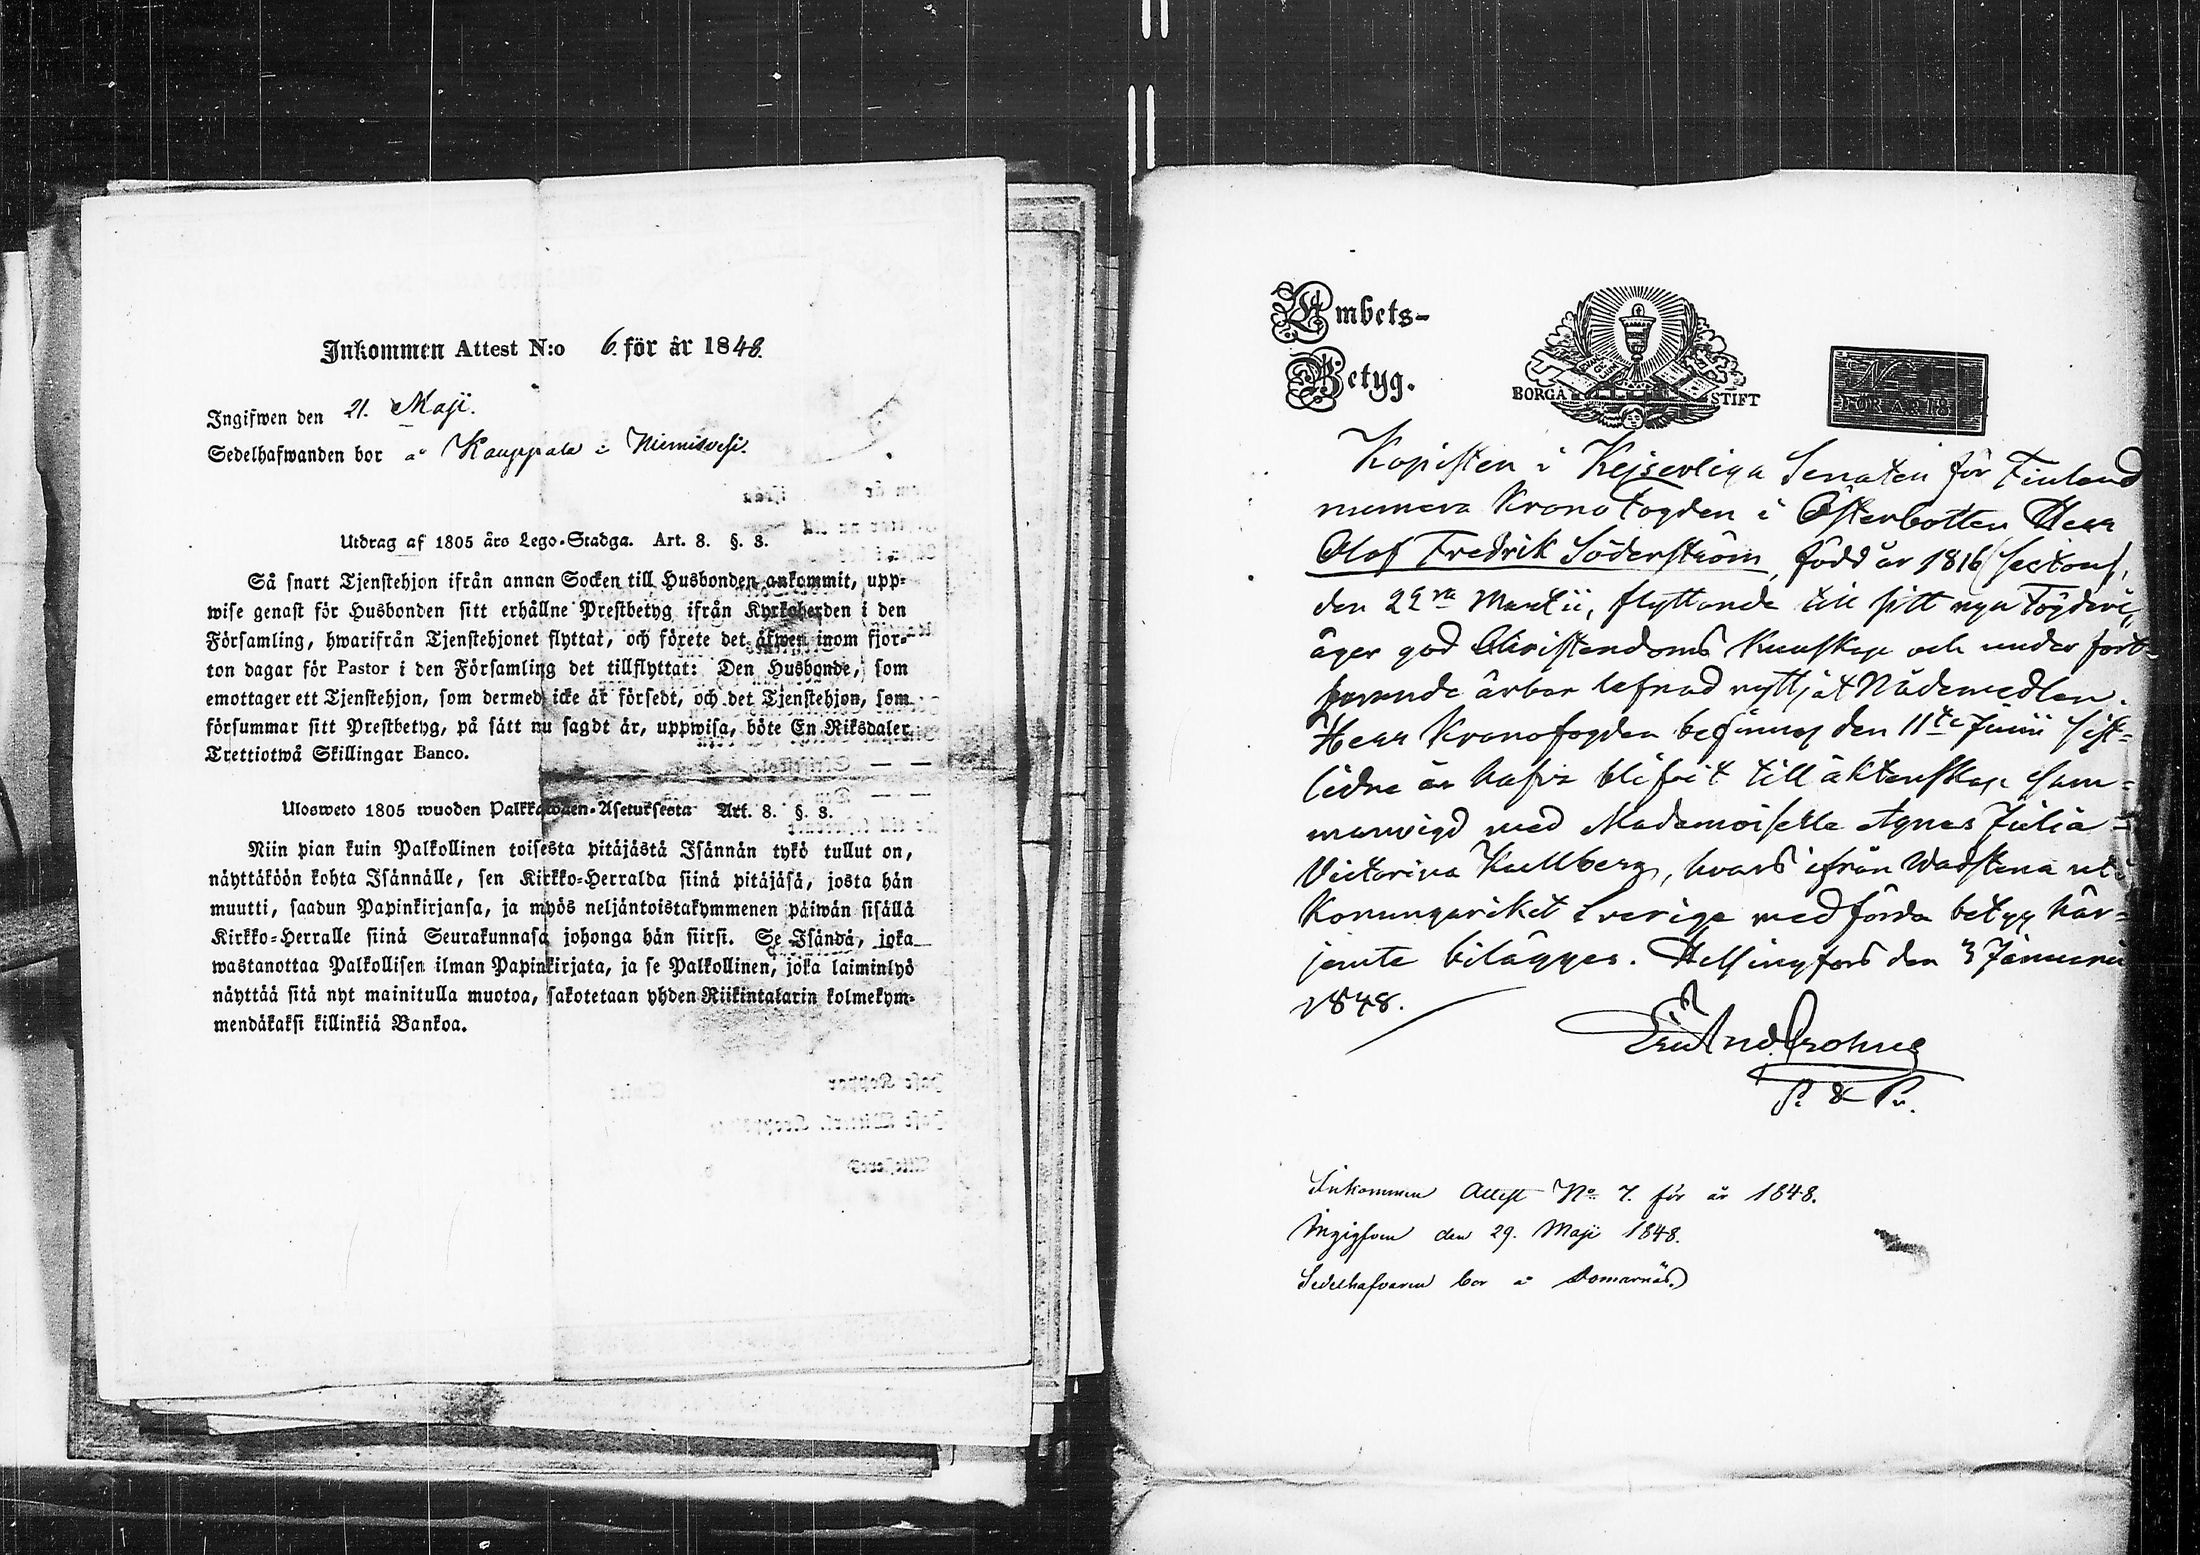 Inkommen Attest N:o 6. för år 1848.
Ingifwen den 21. Maji.
Sedelhafwanden bor å Kauppala i Niemisvesi.
Utdrag af 1805 års Lego-Stadga. Art. 8. §. 3.
Så snart Tjenstehjon ifrån annan Socken till Husbonden ankommit, upp-
wise genast för Husbonden sitt erhållne Prestbetyg ifrån Kyrkoherden i den
Församling, hwarifrån Tjenstehjonet flyttat, och förete det äfwen inom fjor-
ton dagar för Pastor i den Församling det tillflyttat: Den Husbonde, som
emottager ett Tjenstehjon, som dermed icke är försedt, och det Tjenstehjon, som
försummar sitt Prestbetyg, på sätt nu sagdt är, uppwisa, böte En Riksdaler
Trettiotwå Skillingar Banco.
Ulosweto 1805 wuoden Palkkawäen-Asetuksesta Art. 8. §. 3.
Niin pian kuin Palkollinen toisesta pitäjästä Isännän tykö tullut on,
näyttäköön kohta Isännälle, sen Kirkko-Herralda siinä pitäjäsä, josta hän
muutti, saadun Papinkirjansa, ja myös neljäntoistakymmenen päiwän sisällä
Kirkko-Herralle siinä Seurakunnasa johonga hän siirsi. Se Isändä, joka
wastanottaa Palkollisen ilman Papinkirjata, ja se Palkollinen, joka laiminlyö
näyttää sitä nyt mainitulla muotoa, sakotetaan yhden Riikintalarin kolmekym-
mendäkaksi killinkiä Bankoa.
Embets-
Betyg.
BORGÅ STIFT
N
FÖR ÅR 18
Kopisten i Kejserliga Senaten för Finland
numera Kronofogden i Österbotten Herr
Olof Fredrik Söderström, född år 1816 (sexton),
den 22ra Martii, flyttande till sitt nya Fögderi,
äger god Christendoms Kunskap och under fort-
farande ärbar lefnad nyttjat Nådemedlen.
Herr Kronofogden befinnes den 11te Junii sist-
lidne år hafva blifvit till äktenskap sam-
manvigd med Mademoiselle Agnes Julia
Victorina Kullberg, hvars ifrån Wadstena uti
Konungariket Sverige medförda betyg här-
jemte bilägges. Helsingfors den 3 Januarii
1848.
And. Crohns
P. & Pr.
Inkommen Attest No 7. för år 1848.
Ingifven den 29. Maji 1848.
Sedelhafvaren bor å Domarnäs.